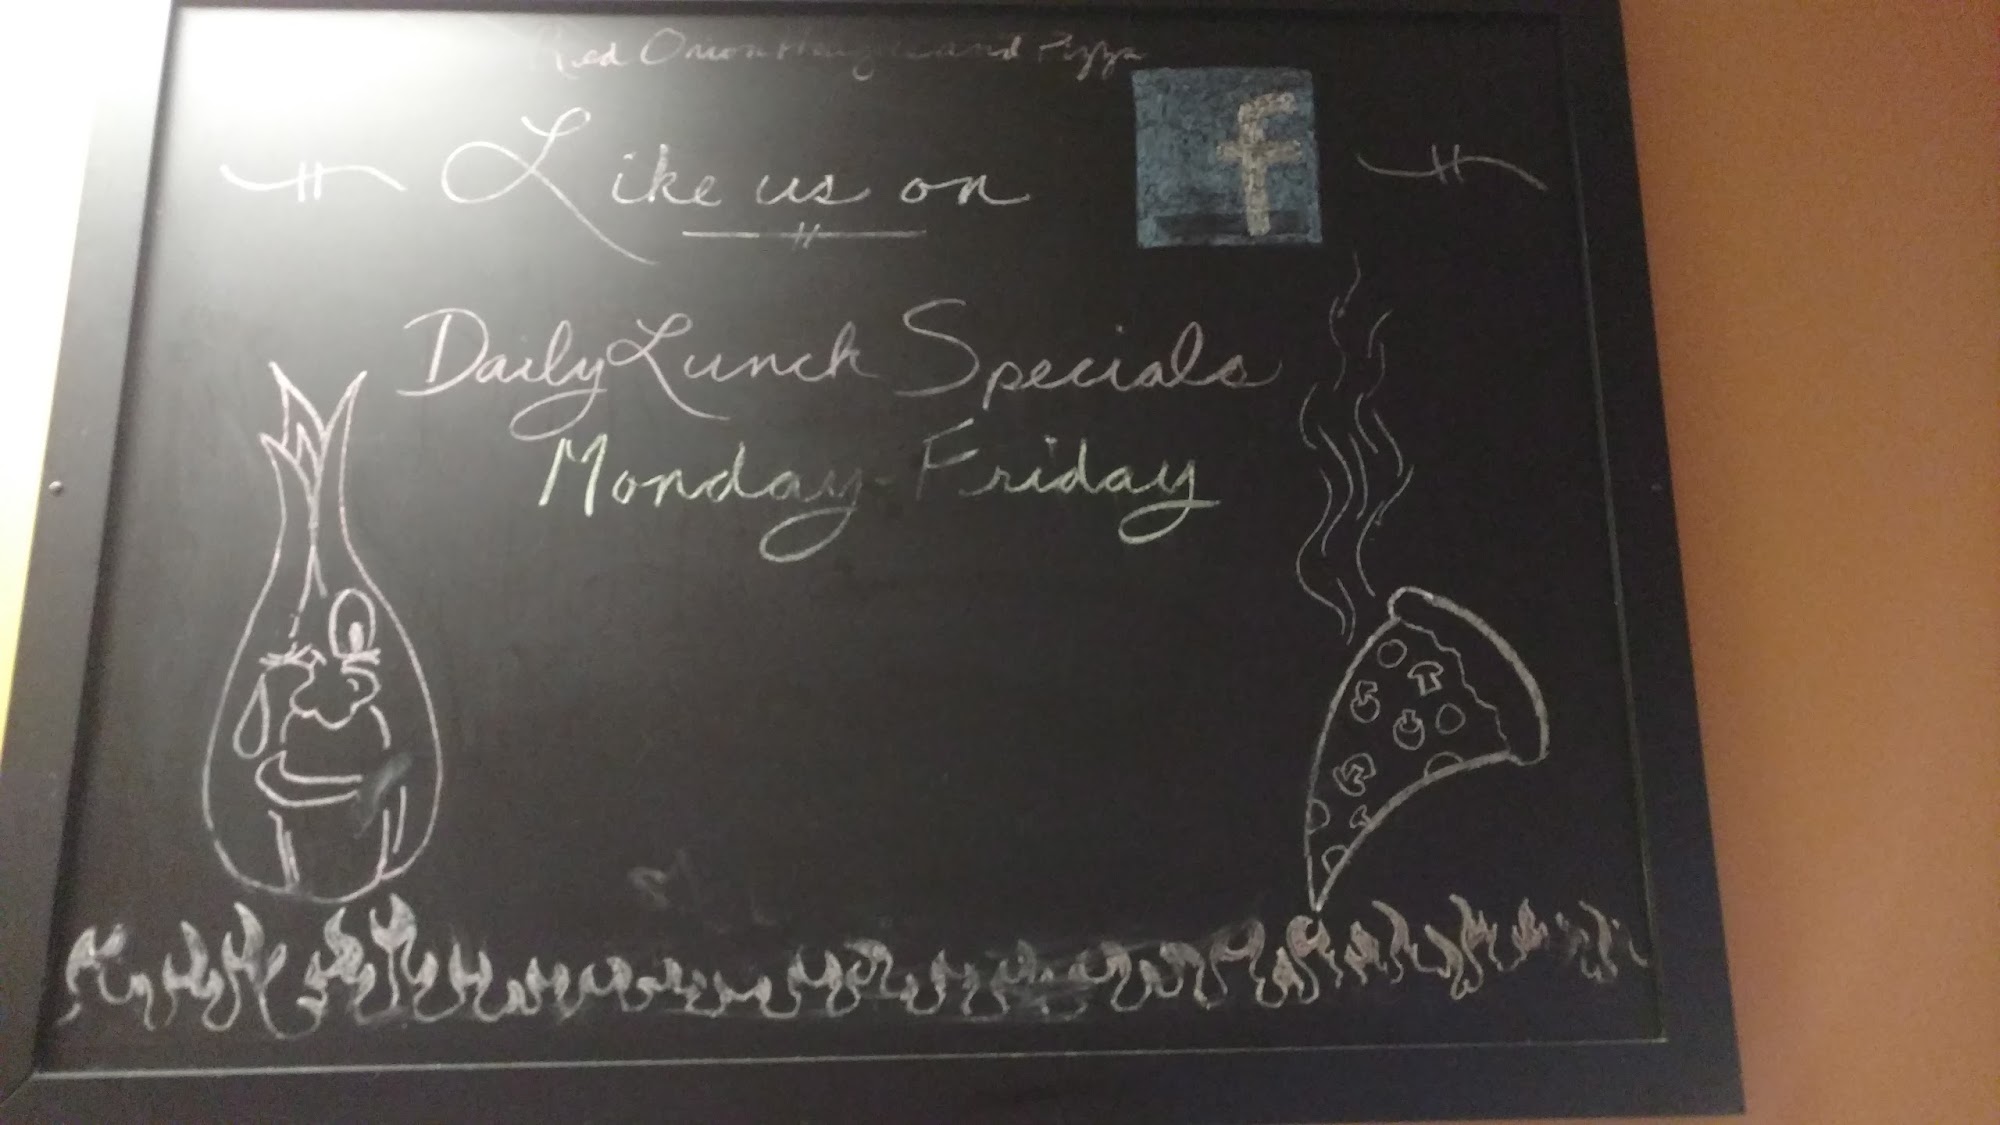 Red Onion and Pizza
Like us on f
Daily Lunch Specials
Monday-Friday